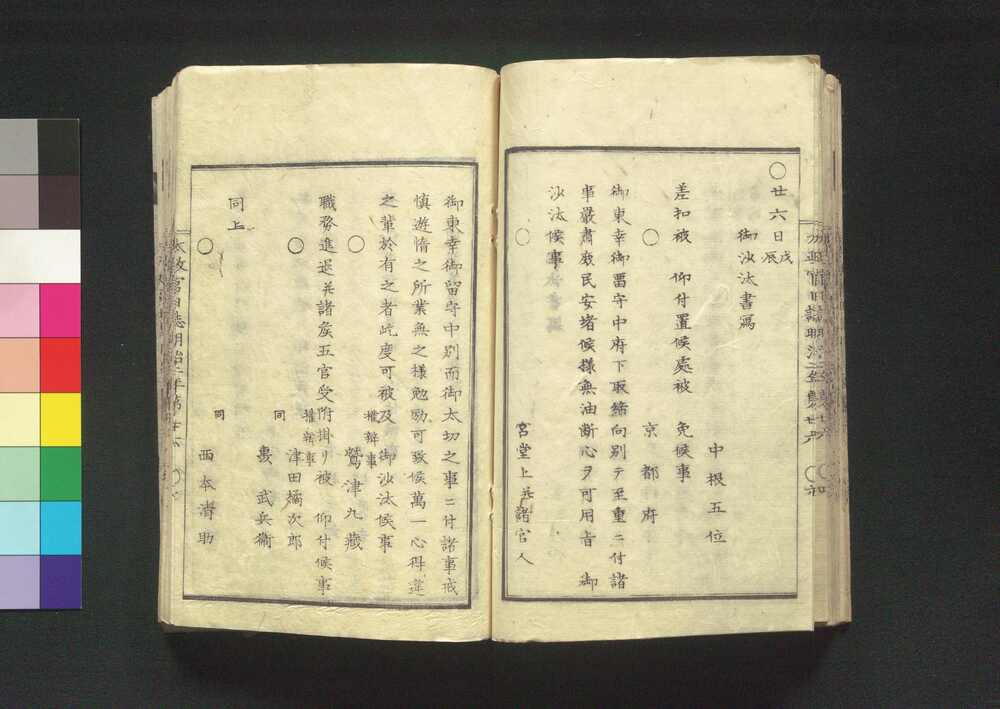 ○廿六日戊辰
御沙汰書寫
中根五位
差扣被 仰付置候處被 免候事
○ 京都府
御東幸御畱守中府下取締向別テ至重ニ付諸
事嚴肅庶民安堵候様無油断心ヲ可用旨 御
沙汰候事
○ 宮堂上并諸官人
御東幸御留守中別而御太切之事ニ付諸事戒
慎遊惰之所業無之様勉励可致候萬一心得違
之輩於有之者屹度可被及御沙汰候事
○ 權辨事 鷲津九藏
職務進退并諸矦五官受附掛リ被 仰付候事
○ 權辨事 津田橘次郎
同 武兵衞
同上
○ 同 西本清助
太政官日誌明治二年第廿六